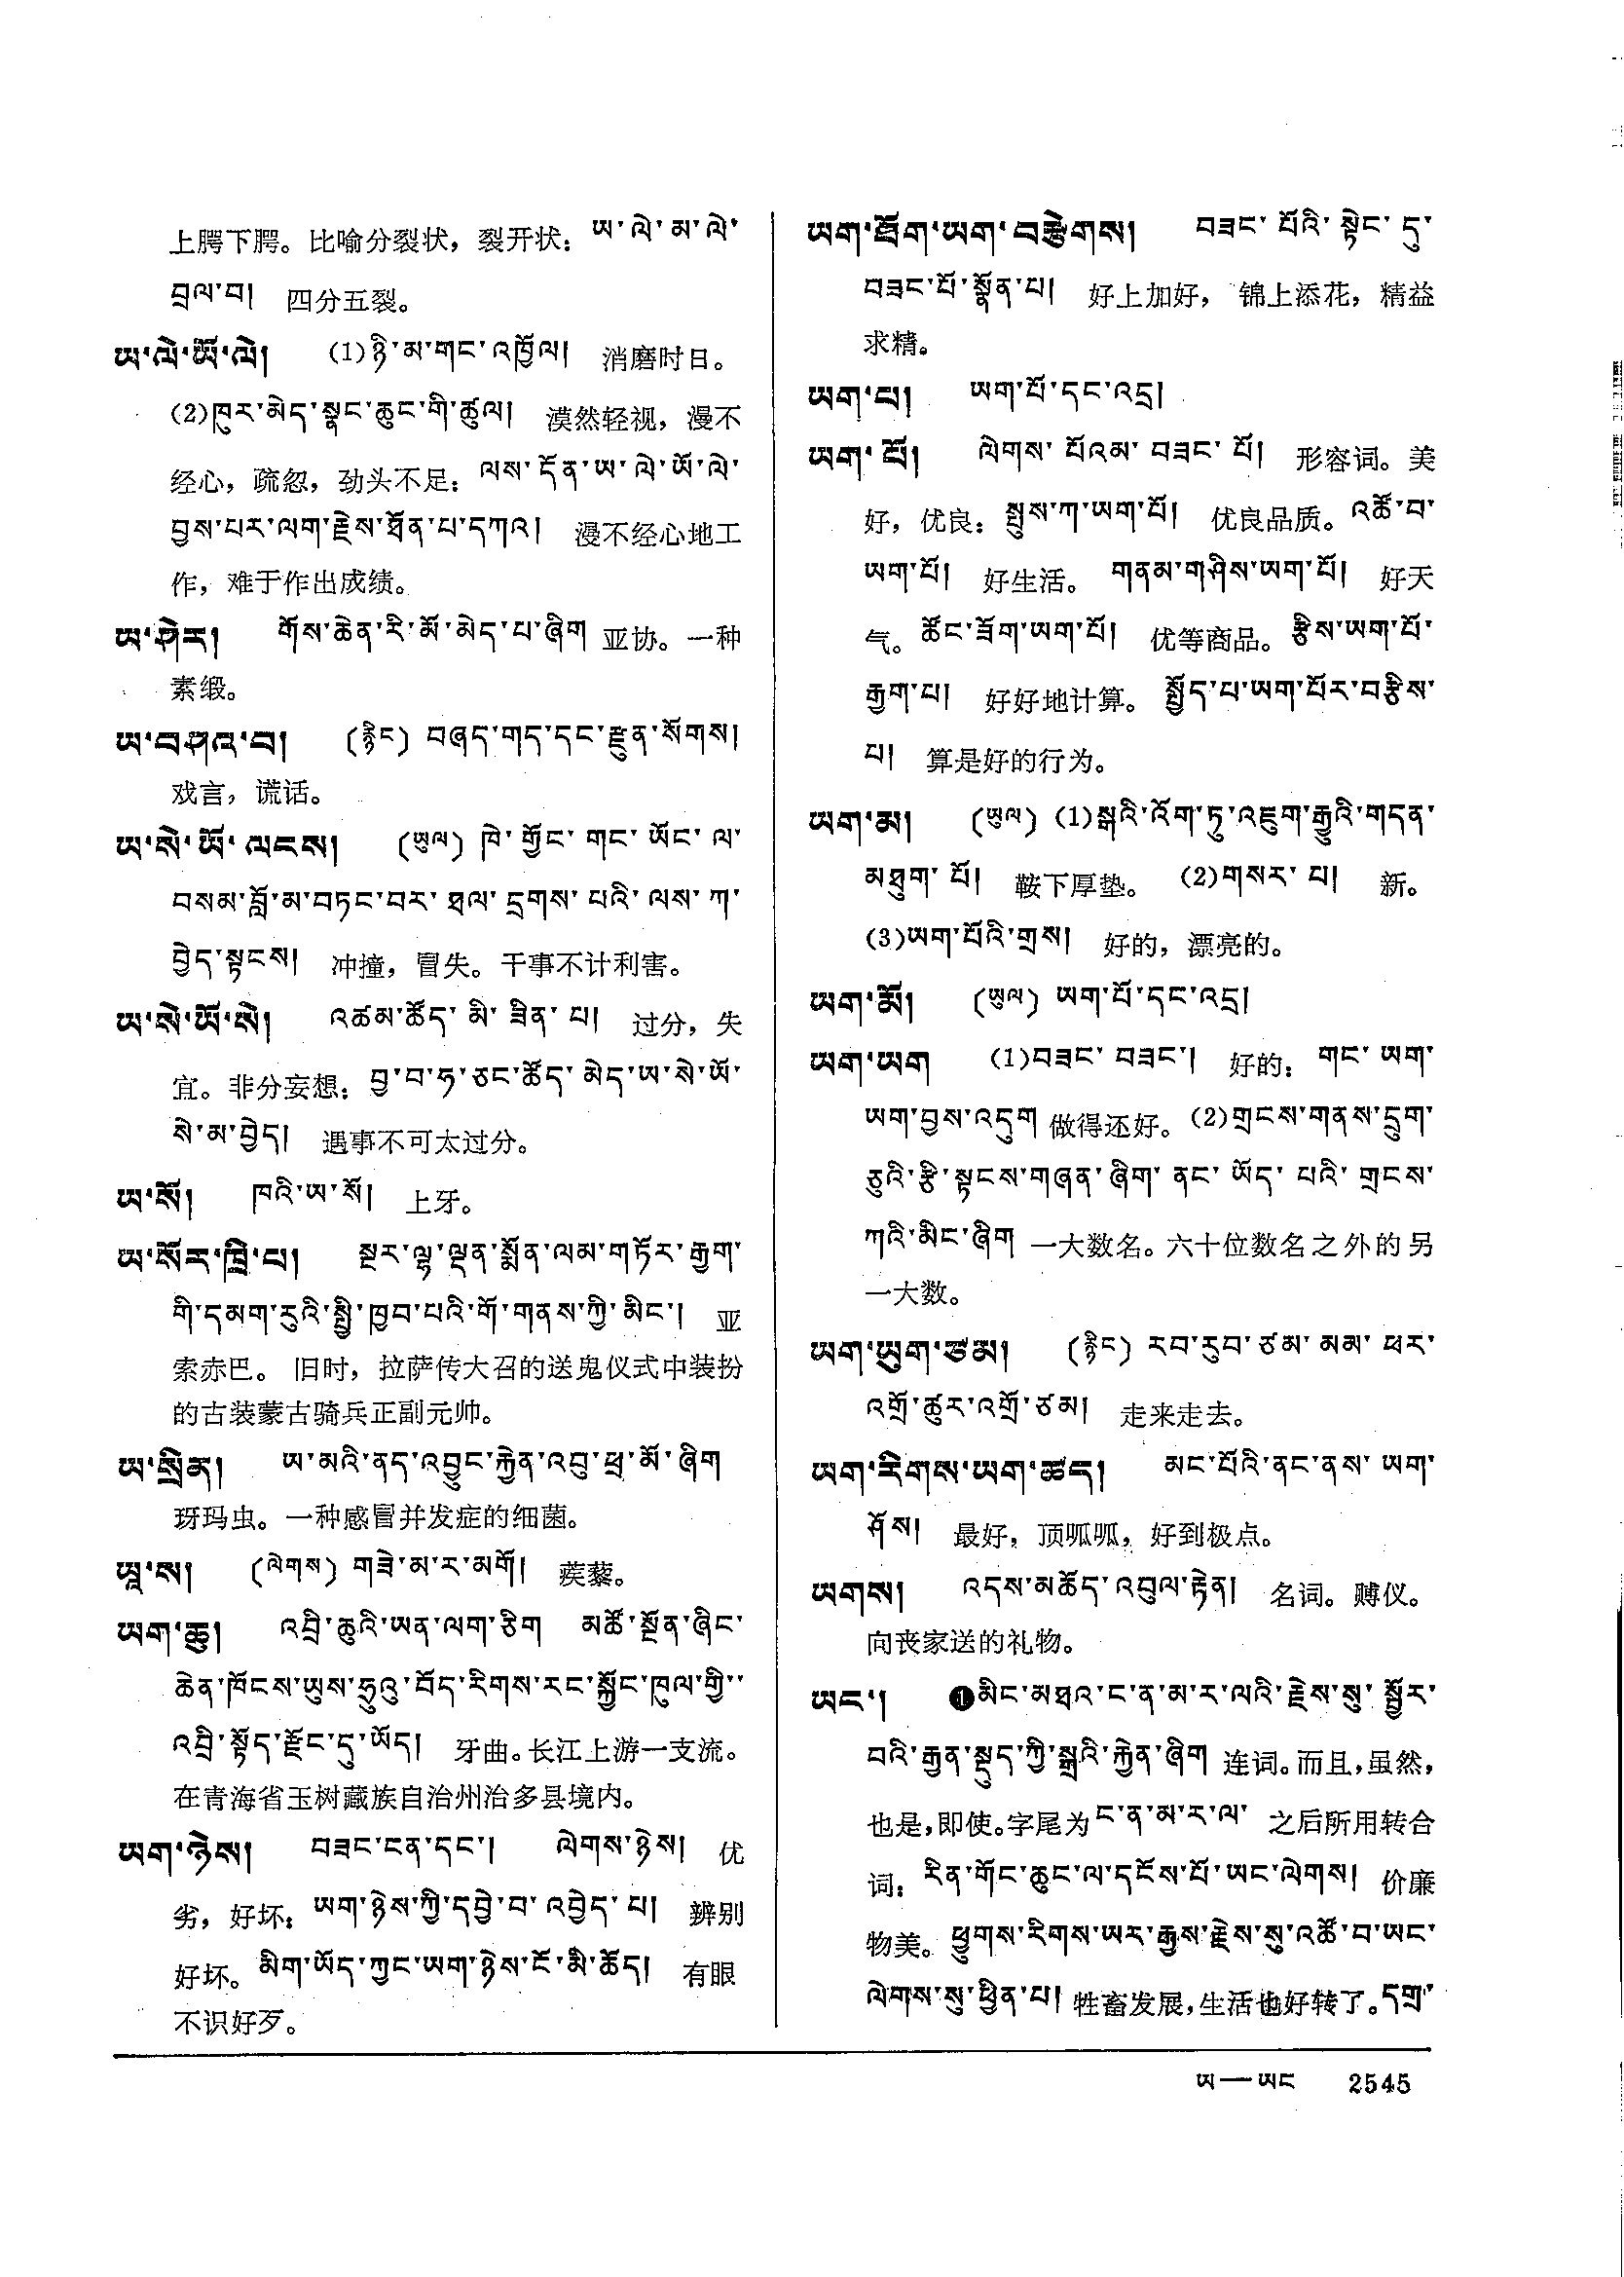 上腭下腭。比喻分裂状，裂开状：ཡ་ལེ་མ་ལེ་
བྲལ་བ། 四分五裂。
ཡ་ལེ་ཡོ་ལེ། (1)ཉི་མ་གང་འཁྱོལ། 消磨时日。
(2)ཁུར་མེད་སྣང་ཆུང་གི་ཚུལ། 漠然轻视，漫不
经心，疏忽，劲头不足：ལས་དོན་ཡ་ལེ་ཡོ་ལེ་
བྱས་པར་ལག་རྗེས་ཐོན་པ་དཀའ། 漫不经心地工
作，难于作出成绩。
ཡ་ཤེར། གོས་ཆེན་རི་མོ་མེད་པ་ཞིག 亚协。一种
素缎。
ཡ་བཤའ་བ། (རྙིང) བཞད་གད་དང་རྫུན་སོགས།
戏言，谎话。
ཡ་སེ་ཡོ་ལངས། (ཡུལ) ཁེ་གྱོང་གང་ཡོང་ལ་
བསམ་བློ་མ་བཏང་བར་ཐལ་དྲགས་པའི་ལས་ཀ་
བྱེད་སྟངས། 冲撞，冒失。干事不计利害。
ཡ་སེ་ཡོ་སེ། འཚམ་ཚོད་མི་ཟིན་པ། 过分，失
宜。非分妄想：བྱ་བ་ཧ་ཅང་ཚོད་མེད་ཡ་སེ་ཡོ་
སེ་མ་བྱེད། 遇事不可太过分。
ཡ་སོ། ཁའི་ཡ་སོ། 上牙。
ཡ་སོར་ཁྲི་པ། སྔར་ལྷ་ལྡན་སྨོན་ལམ་གཏོར་རྒྱག་
གི་དམག་རུའི་སྤྱི་ཁྱབ་པའི་གོ་གནས་ཀྱི་མིང་། 亚
索赤巴。 旧时，拉萨传大召的送鬼仪式中装扮
的古装蒙古骑兵正副元帅。
ཡ་སྲིན། ཡ་མའི་ནད་འབྱུང་རྐྱེན་འབུ་ཕྲ་མོ་ཞིག
玡玛虫。一种感冒并发症的细菌。
ཡཱ་ས། (ལེགས) གཟེ་མ་ར་མགོ། 蒺藜。
ཡག་ཆུ། འབྲི་ཆུའི་ཡན་ལག་ཅིག མཚོ་སྔོན་ཞིང་
ཆེན་ཁོངས་ཡུས་ཧྲུའུ་བོད་རིགས་རང་སྐྱོང་ཁུལ་གྱི་
འབྲི་སྟོད་རྫོང་དུ་ཡོད། 牙曲。长江上游一支流。
在青海省玉树藏族自治州治多县境内。
ཡག་ཉེས། བཟང་ངན་དང་། ལེགས་ཉེས། 优
劣，好坏：ཡག་ཉེས་ཀྱི་དབྱེ་བ་འབྱེད་པ། 辨别
好坏。མིག་ཡོད་ཀྱང་ཡག་ཉེས་ངོ་མི་ཚོད། 有眼
不识好歹。
ཡག་ཐོག་ཡག་བརྩེགས། བཟང་པོའི་སྟེང་དུ་
བཟང་པོ་སྣོན་པ། 好上加好，锦上添花，精益
求精。
ཡག་པ། ཡག་པོ་དང་འདྲ།
ཡག་པོ། ལེགས་པོའམ་བཟང་པོ། 形容词。美
好，优良：སྤུས་ཀ་ཡག་པོ། 优良品质。འཚོ་བ་
ཡག་པོ། 好生活。 གནམ་གཤིས་ཡག་པོ། 好天
气。ཚོང་ཟོག་ཡག་པོ། 优等商品。རྩིས་ཡག་པོ་
རྒྱག་པ། 好好地计算。 སྤྱོད་པ་ཡག་པོར་བརྩིས་
པ། 算是好的行为。
ཡག་མ། (ཡུལ) (1)སྒའི་འོག་ཏུ་འཇུག་རྒྱུའི་གདན་
མཐུག་པོ། 鞍下厚垫。 (2)གསར་པ། 新。
(3)ཡག་པོའི་གྲས། 好的，漂亮的。
ཡག་མོ། (ཡུལ) ཡག་པོ་དང་འདྲ།
ཡག་ཡག (1)བཟང་བཟང་། 好的：གང་ཡག་
ཡག་བྱས་འདུག 做得还好。(2)གྲངས་གནས་དྲུག་
ཅུའི་རྩི་སྟངས་གཞན་ཞིག་ནང་ཡོད་པའི་གྲངས་
ཀའི་མིང་ཞིག 一大数名。六十位数名之外的另
一大数。
ཡག་ཡུག་ཙམ། (རྙིང) རབ་རུབ་ཙམ་མམ་ཕར་
འགྲོ་ཚུར་འགྲོ་ཙམ། 走来走去。
ཡག་རིགས་ཡག་ཚད། མང་པོའི་ནང་ནས་ཡག་
ཤོས། 最好，顶呱呱，好到极点。
ཡགས། འདས་མཆོད་འབུལ་རྟེན། 名词。赙仪。
向丧家送的礼物。
ཡང་། ❶མིང་མཐའ་ང་ན་མ་ར་ལའི་རྗེས་སུ་སྦྱོར་
བའི་རྒྱན་སྡུད་ཀྱི་སྒྲའི་རྐྱེན་ཞིག 连词。而且，虽然，
也是，即使。字尾为ང་ན་མ་ར་ལ་ 之后所用转合
词：རིན་གོང་ཆུང་ལ་དངོས་པོ་ཡང་ལེགས། 价廉
物美。ཕྱུགས་རིགས་ཡར་རྒྱས་རྗེས་སུ་འཚོ་བ་ཡང་
ལེགས་སུ་ཕྱིན་པ། 牲畜发展，生活也好转了。དགྲ་
ཡ — ཡང 2545